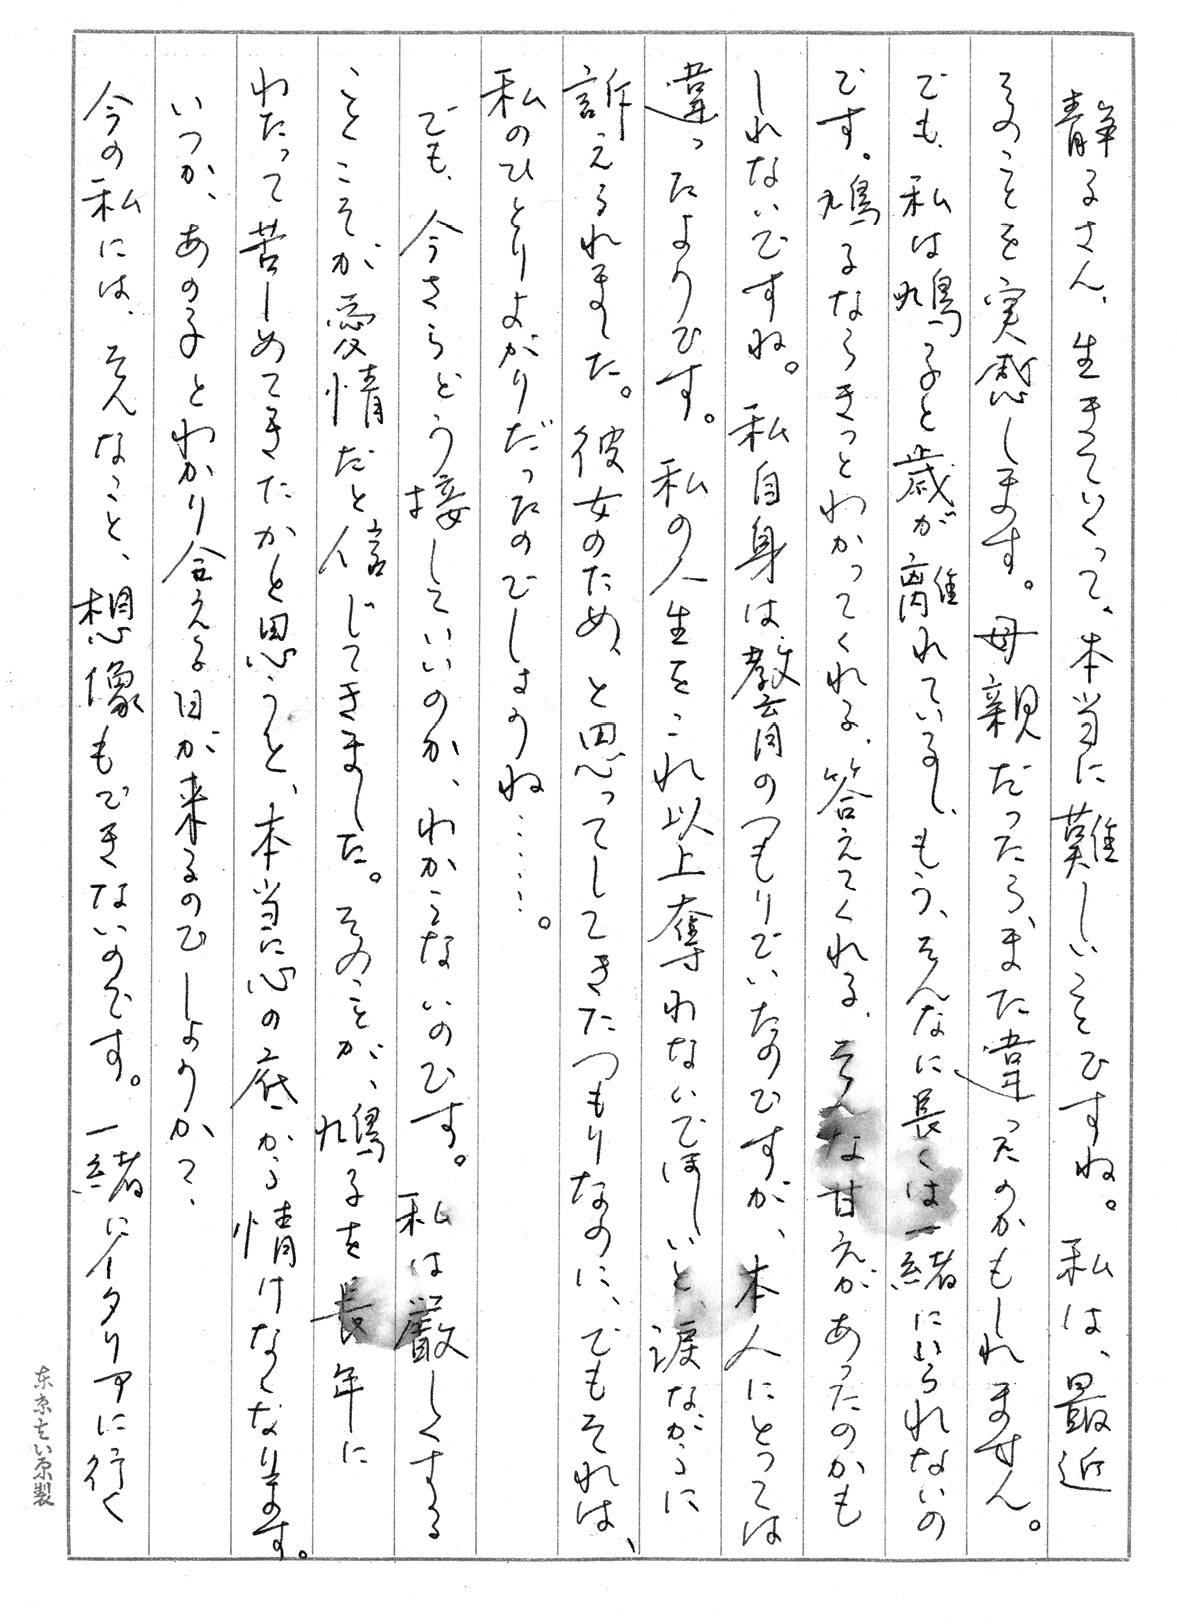 静子さん、生きていくって、本当に難しいことですね。私は、最近
そのことを実感します。母親だったら、また違ったのかもしれません。
でも、私は鳩子と歳が離れているし、もう、そんなに長くは一緒にいられないの
です。鳩子ならきっとわかってくれる、答えてくれる、そんな甘えがあったのかも
しれないですね。私自身は教育のつもりでいたのですが、本人にとっては
違ったようです。私の人生をこれ以上奪わないでほしいと、涙ながらに
訴えられました。彼女のため、と思ってしてきたつもりなのに、でもそれは、
私のひとりよがりだったのでしょうね……。
でも、今さらどう接していいのか、わからないのです。私は厳しくする
ことこそが愛情だと信じてきました。そのことが、鳩子を長年に
わたって苦しめてきたかと思うと、本当に心の底から情けなくなります。
いつか、あの子とわかり合える日が来るのでしょうか?
今の私には、そんなこと、想像もできないのです。一緒にイタリアに行く
東京たい京製